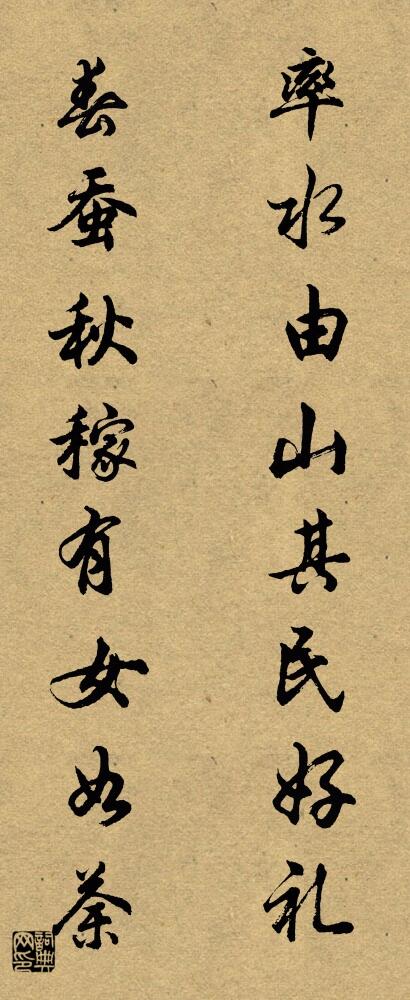 率水由山其民好礼
春蚕秋稼有女如荼
詞典网印